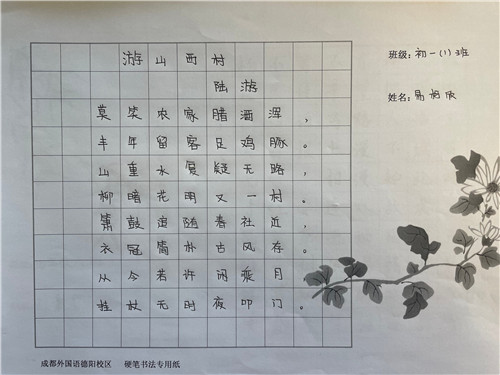 游山西村
陆游
班级：初一(1)班
姓名：易
莫笑农家腊酒浑，
丰年留客足鸡豚。
山重水复疑无路，
柳暗花明又一村。
箫鼓追随春社近，
衣冠简朴古风存。
从今若许闲乘月
拄杖无时夜叩门。
成都外国语德阳校区 硬笔书法专用纸